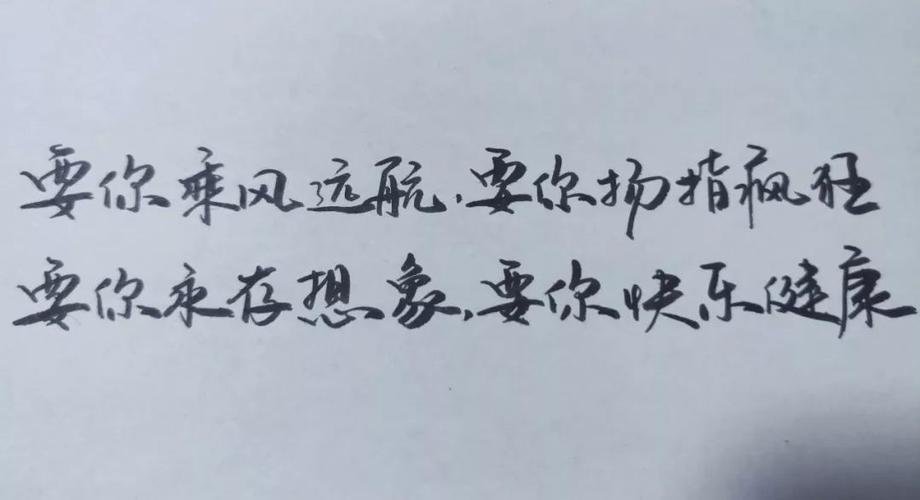 要你乘风远航，要你扬指疯狂
要你永存想象，要你快乐健康